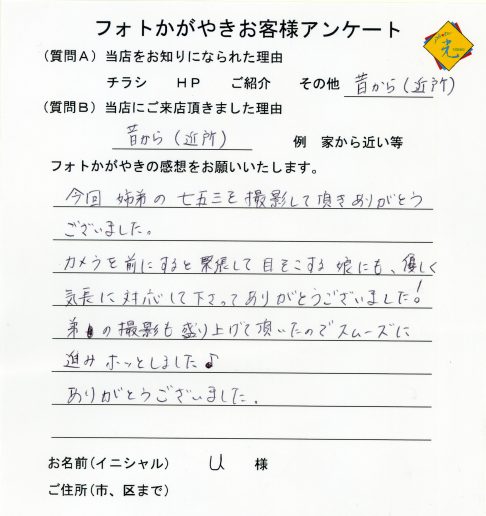 フォトかがやきお客様アンケート
(質問A)当店をお知りになられた理由
チラシ HP ご紹介 その他 昔から(近所)
(質問B)当店にご来店頂きました理由
昔から(近所) 例 家から近い等
フォトかがやきの感想をお願いいたします。
今回 姉弟の七五三を撮影して頂きありがとう
ございました。
カメラを前にすると緊張して目をこする娘にも、優しく
気長に対応して下さってありがとうございました!
弟の撮影も盛り上げて頂いたのでスムーズに
進みホッとしました♪
ありがとうございました。
お名前(イニシャル) U 様
ご住所(市、区まで)
光